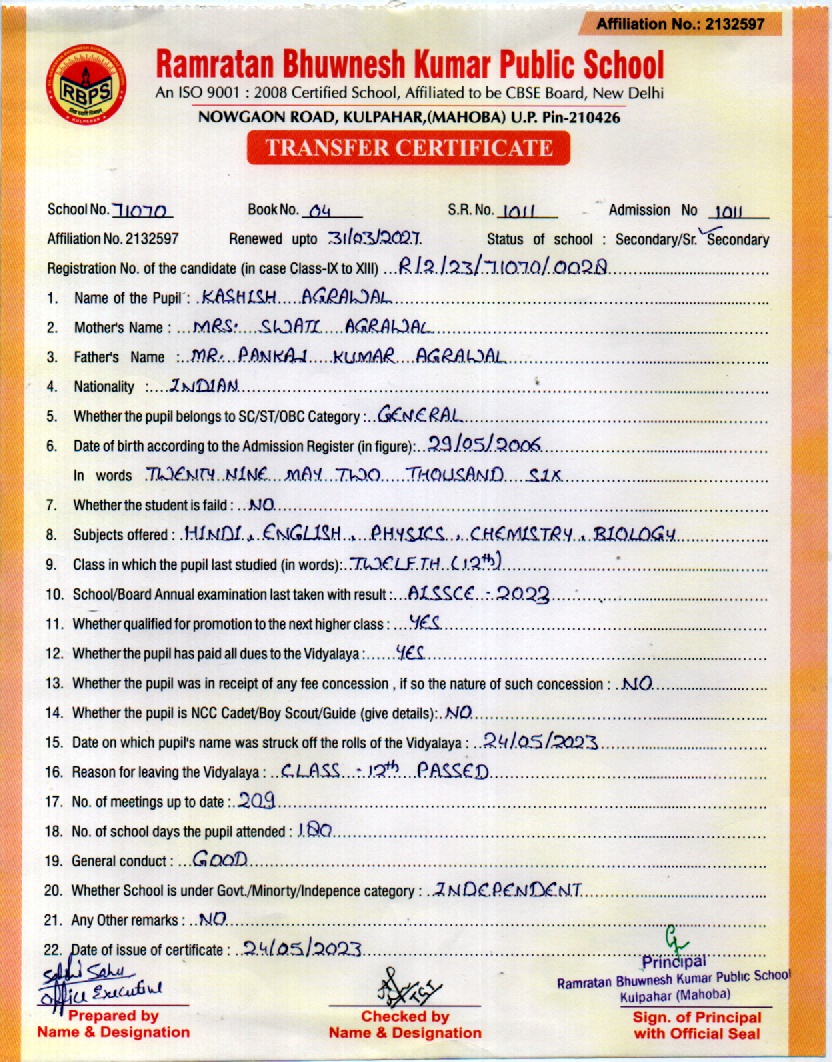 Affiliation No.: 2132597
RBPS
KULPAHAR
Ramratan Bhuwnesh Kumar Public School
An ISO 9001 : 2008 Certified School, Affiliated to be CBSE Board, New Delhi
NOWGAON ROAD, KULPAHAR,(MAHOBA) U.P. Pin-210426
TRANSFER CERTIFICATE
School No. 71070 Book No. 04 S.R. No. 1011 Admission No 1011
Affiliation No. 2132597 Renewed upto 31/03/2027. Status of school : Secondary/Sr. Secondary
Registration No. of the candidate (in case Class-IX to XIII) R/2/23/71070/0028
1. Name of the Pupil : KASHISH AGRAWAL
2. Mother's Name : MRS. SWATI AGRAWAL
3. Father's Name : MR. PANKAJ KUMAR AGRAWAL
4. Nationality : INDIAN
5. Whether the pupil belongs to SC/ST/OBC Category : GENERAL
6. Date of birth according to the Admission Register (in figure): 29/05/2006
In words TWENTY NINE MAY TWO THOUSAND SIX
7. Whether the student is faild : NO
8. Subjects offered : HINDI, ENGLISH, PHYSICS, CHEMISTRY, BIOLOGY
9. Class in which the pupil last studied (in words): TWELFTH (12th)
10. School/Board Annual examination last taken with result : AISSCE - 2023
11. Whether qualified for promotion to the next higher class : YES
12. Whether the pupil has paid all dues to the Vidyalaya : YES
13. Whether the pupil was in receipt of any fee concession , if so the nature of such concession : NO
14. Whether the pupil is NCC Cadet/Boy Scout/Guide (give details): NO
15. Date on which pupil's name was struck off the rolls of the Vidyalaya : 24/05/2023
16. Reason for leaving the Vidyalaya : CLASS - 12th PASSED
17. No. of meetings up to date : 209
18. No. of school days the pupil attended : 180
19. General conduct : GOOD
20. Whether School is under Govt./Minorty/Indepence category : INDEPENDENT
21. Any Other remarks : NO
22. Date of issue of certificate : 24/05/2023
Sahu
Office Executive
TGT
Principal
Ramratan Bhuwnesh Kumar Public School
Kulpahar (Mahoba)
Prepared by
Name & Designation
Checked by
Name & Designation
Sign. of Principal
with Official Seal